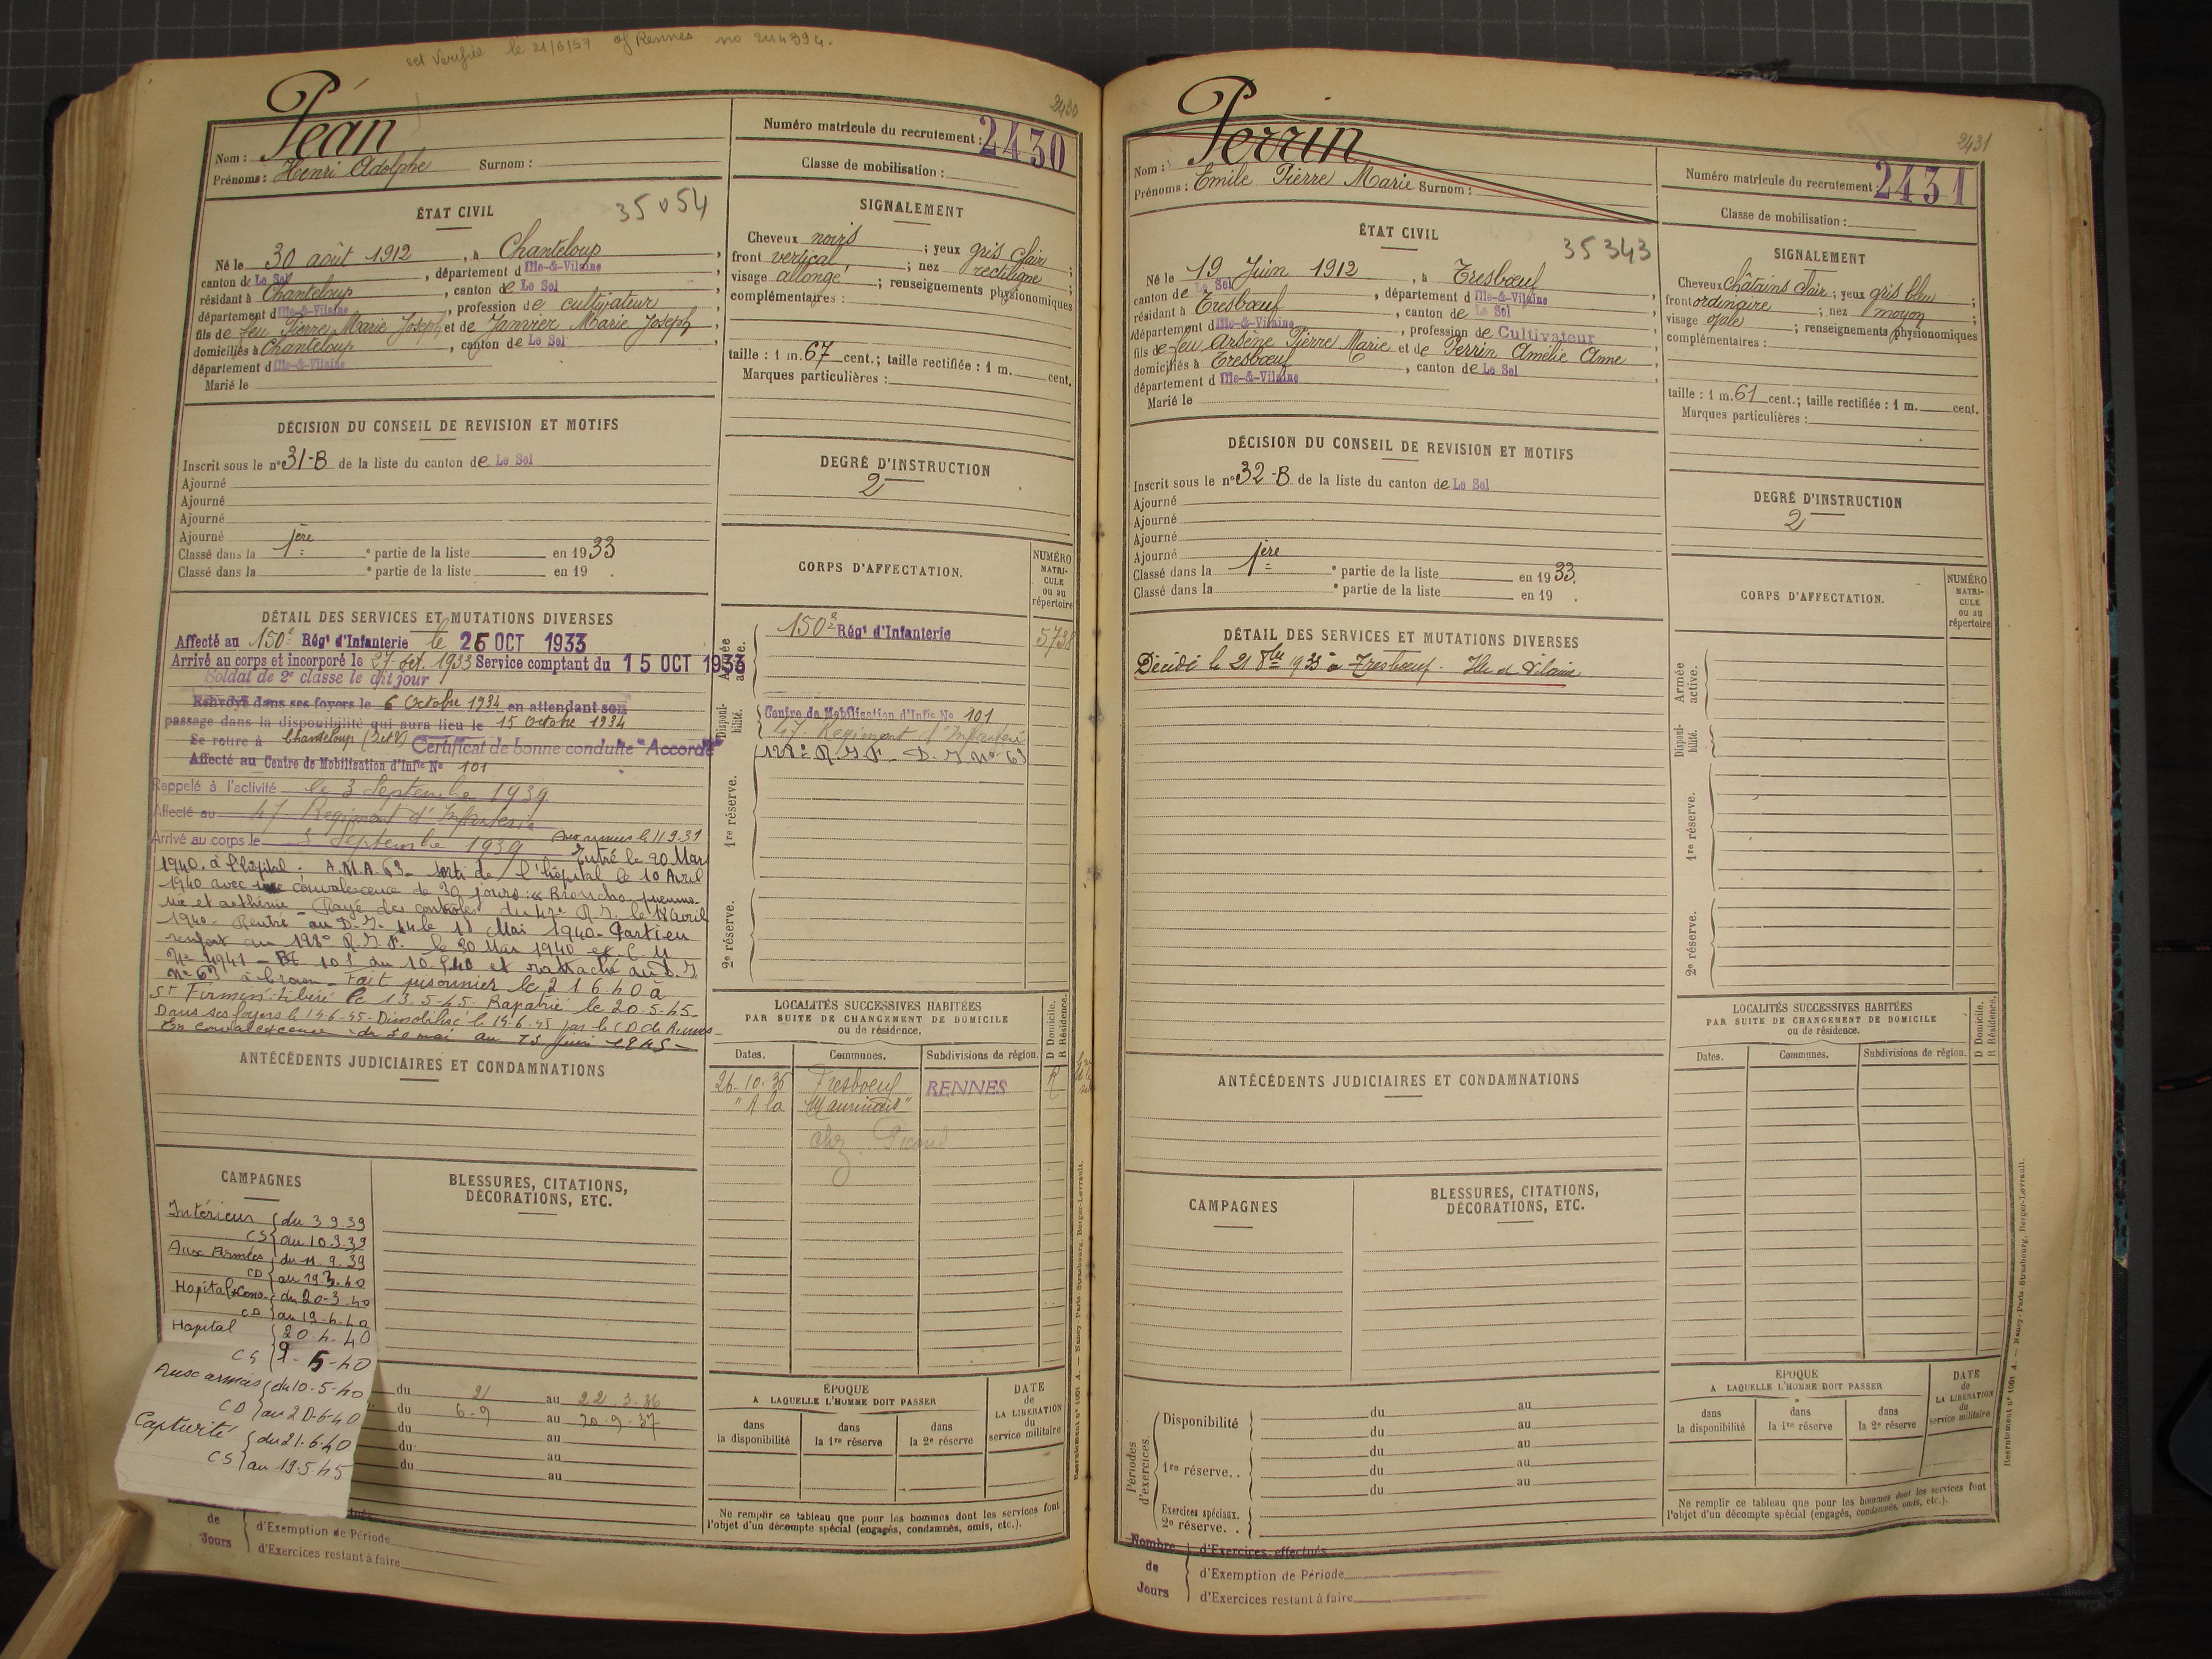 ect Verifiée le 21/8/57 of Rennes no 2114394.
2430
Nom : Péan
Prénoms : Henri Adolphe Surnom :
Numéro matricule du recrutement : 2430
Classe de mobilisation :
ÉTAT CIVIL
35054
Né le 30 août 1912, à Chanteloup,
canton de Le Sel, département d Ille-&-Vilaine
résidant à Chanteloup, canton de Le Sel,
département d Ille-&-Vilaine, profession de cultivateur
fils de feu Pierre Marie Joseph et de Janvier Marie Joseph,
domiciliés à Chanteloup, canton de Le Sel,
département d Ille-&-Vilaine
Marié le
SIGNALEMENT
Cheveux noirs ; yeux gris clair ;
front vertical ; nez rectiligne ;
visage allongé ; renseignements physionomiques
complémentaires :
taille : 1 m. 67 cent. ; taille rectifiée : 1 m. cent.
Marques particulières :
DÉCISION DU CONSEIL DE REVISION ET MOTIFS
Inscrit sous le n° 31-B de la liste du canton de Le Sel
Ajourné
Ajourné
Ajourné
Ajourné
Classé dans la 1ère e partie de la liste en 1933
Classé dans la e partie de la liste en 19 .
DEGRÉ D'INSTRUCTION
2
DÉTAIL DES SERVICES ET MUTATIONS DIVERSES
Affecté au 150e Régt d'Infanterie le 26 OCT 1933
Arrivé au corps et incorporé le 27 Oct. 1933 Service comptant du 15 OCT 1933
Soldat de 2e classe le dit jour
Renvoyé dans ses foyers le 6 Octobre 1934 en attendant son
passage dans la disponibilité qui aura lieu le 15 Octobre 1934
Se retire à Chanteloup (I et V) Certificat de bonne conduite "Accordé"
Affecté au Centre de Mobilisation d'Infie No 101
Rappelé à l'activité le 3 Septembre 1939
Affecté au 47 Régiment d'Infanterie
Arrivé au corps le 3 Septembre 1939 Aux armées le 11.9.39
Entré le 20 Mars
1940 à l'hôpital. A.M.A. 63 - sorti de l'hôpital le 10 Avril
1940 avec une convalescence de 30 jours : « Broncho pneumo-
nie et asthénie - Rayé des contrôles du 47e R.I. le 18 avril
1940. Rentré au D.I. 44 le 11 Mai 1940. Parti en
renfort au 128e R.I.F. le 30 Mai 1940 ex C.M
No 4941 - 101 du 10.5.40 et rattaché au D.I.
No 63 - Fait prisonnier le 21 6.40 à
St Firmin. Libéré le 13.5.45. Rapatrié le 20.5.45.
Dans ses foyers le 14-6-45. Démobilisé le 14-6-45 par le CD de Rennes
En convalescence du 20 mai au 13 Juin 1945 -
CORPS D'AFFECTATION.
NUMÉRO
MATRI-
CULE
ou au
répertoire
Armée active.
150e Régt d'Infanterie 5738
Disponi-
bilité.
Centre de Mobilisation d'Infie No 101
47. Regiment d'Infanterie
128e R.I.F. - D.I. No 63
1re réserve.
2e réserve.
ANTÉCÉDENTS JUDICIAIRES ET CONDAMNATIONS
LOCALITÉS SUCCESSIVES HABITÉES
PAR SUITE DE CHANGEMENT DE DOMICILE
ou de résidence.
D Domicile.
R Résidence.
Dates. Communes. Subdivisions de région.
26-10-36 Tresboeuf RENNES R
"A la
chez
CAMPAGNES
Intérieur { du 3 9 39
CS { au 10.9.39
Aux Armées { du 11.9.39
CD { au 19.3.40
Hopital + Conv. { du 20-3-40
CD { au 19-4-40
Hopital { 20.4.40
CS { 9-5-40
Aux armées { du 10-5-40
CD { au 20-6-40
Captivité { du 21.6.40
CS { au 19.5.45
BLESSURES, CITATIONS,
DÉCORATIONS, ETC.
du 2 au 22 3.36
du 6.9 au 20.9.37
du au
du au
du au
au
ÉPOQUE
A LAQUELLE L'HOMME DOIT PASSER
dans
la disponibilité
dans
la 1re réserve
dans
la 2e réserve
DATE
de
LA LIBÉRATION
du
service militaire
Ne remplir ce tableau que pour les hommes dont les services font
l'objet d'un décompte spécial (engagés, condamnés, omis, etc.).
de
Jours
d'Exemption de Période
d'Exercices restant à faire
Recrutement n° 1001 A. — Nancy-Paris-Strasbourg, Berger-Levrault.
2431
Nom : Perrin
Prénoms : Emile Pierre Marie Surnom :
Numéro matricule du recrutement : 2431
Classe de mobilisation :
ÉTAT CIVIL
35343
Né le 19 Juin 1912, à Tresbœuf,
canton de Le Sel, département d Ille-&-Vilaine
résidant à Tresbœuf, canton de Le Sel,
département d Ille-&-Vilaine, profession de Cultivateur
fils de feu Arsène Pierre Marie et de Perrin Amélie Anne,
domiciliés à Tresbœuf, canton de Le Sel,
département d Ille-&-Vilaine
Marié le
SIGNALEMENT
Cheveux châtains clair ; yeux gris bleu ;
front ordinaire ; nez moyen ;
visage ovale ; renseignements physionomiques
complémentaires :
taille : 1 m. 61 cent. ; taille rectifiée : 1 m. cent.
Marques particulières :
DÉCISION DU CONSEIL DE REVISION ET MOTIFS
Inscrit sous le n° 32-B de la liste du canton de Le Sel
Ajourné
Ajourné
Ajourné
Ajourné
Classé dans la 1ère e partie de la liste en 1933.
Classé dans la e partie de la liste en 19 .
DEGRÉ D'INSTRUCTION
2
DÉTAIL DES SERVICES ET MUTATIONS DIVERSES
Décédé le 21 8bre 1933 à Tresboeuf. Ille et Vilaine
CORPS D'AFFECTATION.
NUMÉRO
MATRI-
CULE
ou au
répertoire
Armée active.
Disponi-
bilité.
1re réserve.
2e réserve.
ANTÉCÉDENTS JUDICIAIRES ET CONDAMNATIONS
LOCALITÉS SUCCESSIVES HABITÉES
PAR SUITE DE CHANGEMENT DE DOMICILE
ou de résidence.
D Domicile.
R Résidence.
Dates. Communes. Subdivisions de région.
CAMPAGNES
BLESSURES, CITATIONS,
DÉCORATIONS, ETC.
Périodes
d'exercices.
Disponibilité
du au
du au
1re réserve. .
du au
du au
du au
Exercices spéciaux.
2e réserve. .
ÉPOQUE
A LAQUELLE L'HOMME DOIT PASSER
dans
la disponibilité
dans
la 1re réserve
dans
la 2e réserve
DATE
de
LA LIBÉRATION
du
service militaire
Ne remplir ce tableau que pour les hommes dont les services font
l'objet d'un décompte spécial (engagés, condamnés, omis, etc.).
Nombre
de
Jours
d'Exercices effectués
d'Exemption de Période
d'Exercices restant à faire
Recrutement n° 1001 A. — Nancy-Paris-Strasbourg, Berger-Levrault.